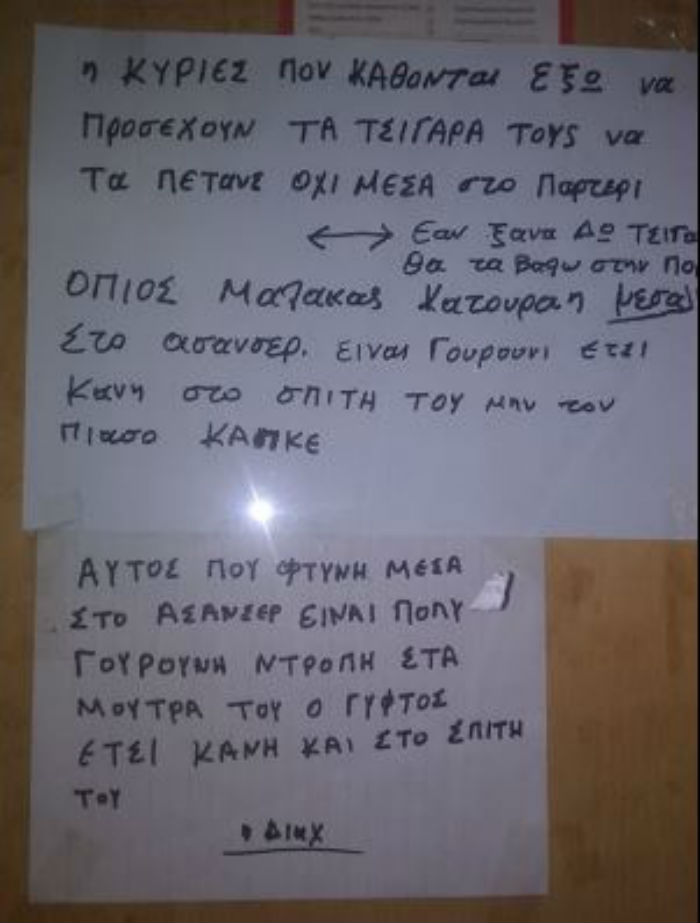 η ΚΥΡΙΕΣ ΠΟΥ ΚΑΘΟΝΤΑΙ ΕΞΩ να
ΠΡΟΣΕΧΟΥΝ ΤΑ ΤΣΙΓΑΡΑ ΤΟΥΣ να
Τα ΠΕΤΑΝΕ ΟΧΙ ΜΕΣΑ στο Παρτερι
Εαν ξανα ΔΩ ΤΣΙΓΑ
Θα τα Βαψω στην Πο
ΟΠΙΟΣ Μαλακας Κατουραη μεσα
Στο ασανσερ. ειναι Γουρουνι ετσι
Κανη στο σπιτη ΤΟΥ μην τον
Πιασο ΚΑΠΚΕ
ΑΥΤΟΣ ΠΟΥ ΦΤΥΝΗ ΜΕΣΑ
ΣΤΟ ΑΣΑΝΣΕΡ ΕΙΝΑΙ ΠΟΛΥ
ΓΟΥΡΟΥΝΗ ΝΤΡΟΠΗ ΣΤΑ
ΜΟΥΤΡΑ ΤΟΥ Ο ΓΥΦΤΟΣ
ΕΤΣΙ ΚΑΝΗ ΚΑΙ ΣΤΟ ΣΠΙΤΗ
ΤΟΥ
η Διαχ